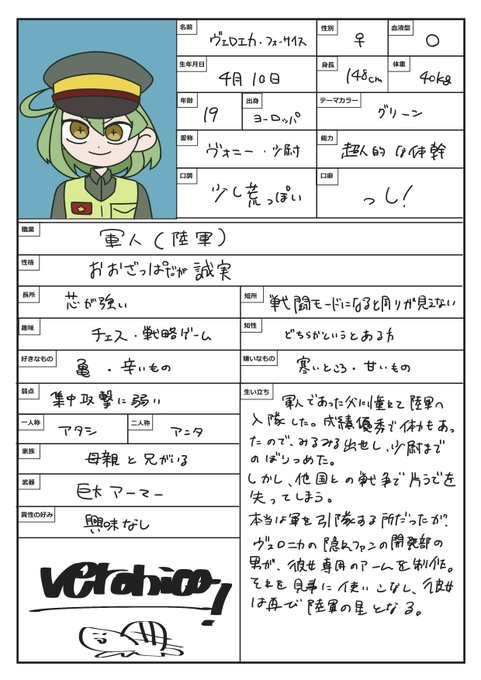 名前 ヴェロエカ・フォーサイス 性別 ♀ 血液型 O
生年月日 4月10日 身長 148cm 体重 40kg
年齢 19 出身 ヨーロッパ テーマカラー グリーン
愛称 ヴォニー・少尉 能力 超人的な体幹
口調 少し荒っぽい 口癖 っし!
職業 軍人(陸軍)
性格 おおざっぱだが誠実
長所 芯が強い 短所 戦闘モードになると周りが見えない
趣味 チェス・戦略ゲーム 知性 どちらかというとある方
好きなもの 亀・辛いもの 嫌いなもの 寒いところ・甘いもの
弱点 集中攻撃に弱い
一人称 アタシ 二人称 アンタ
家族 母親と兄がいる
武器 巨大アーマー
異性の好み 興味なし
生い立ち
軍人であった父に憧れて陸軍へ
入隊した。成績優秀で体力もあっ
たので、みるみる出世し、少尉まで
のぼりつめた。
しかし、他国との戦争で片うでを
失ってしまう。
本当は軍を引隊する所だったが、
ヴェロニカの隠れファンの開発部の
男が、彼女専用のアームを制作。
それを見事に使いこなし、彼女
は再び陸軍の星となる。